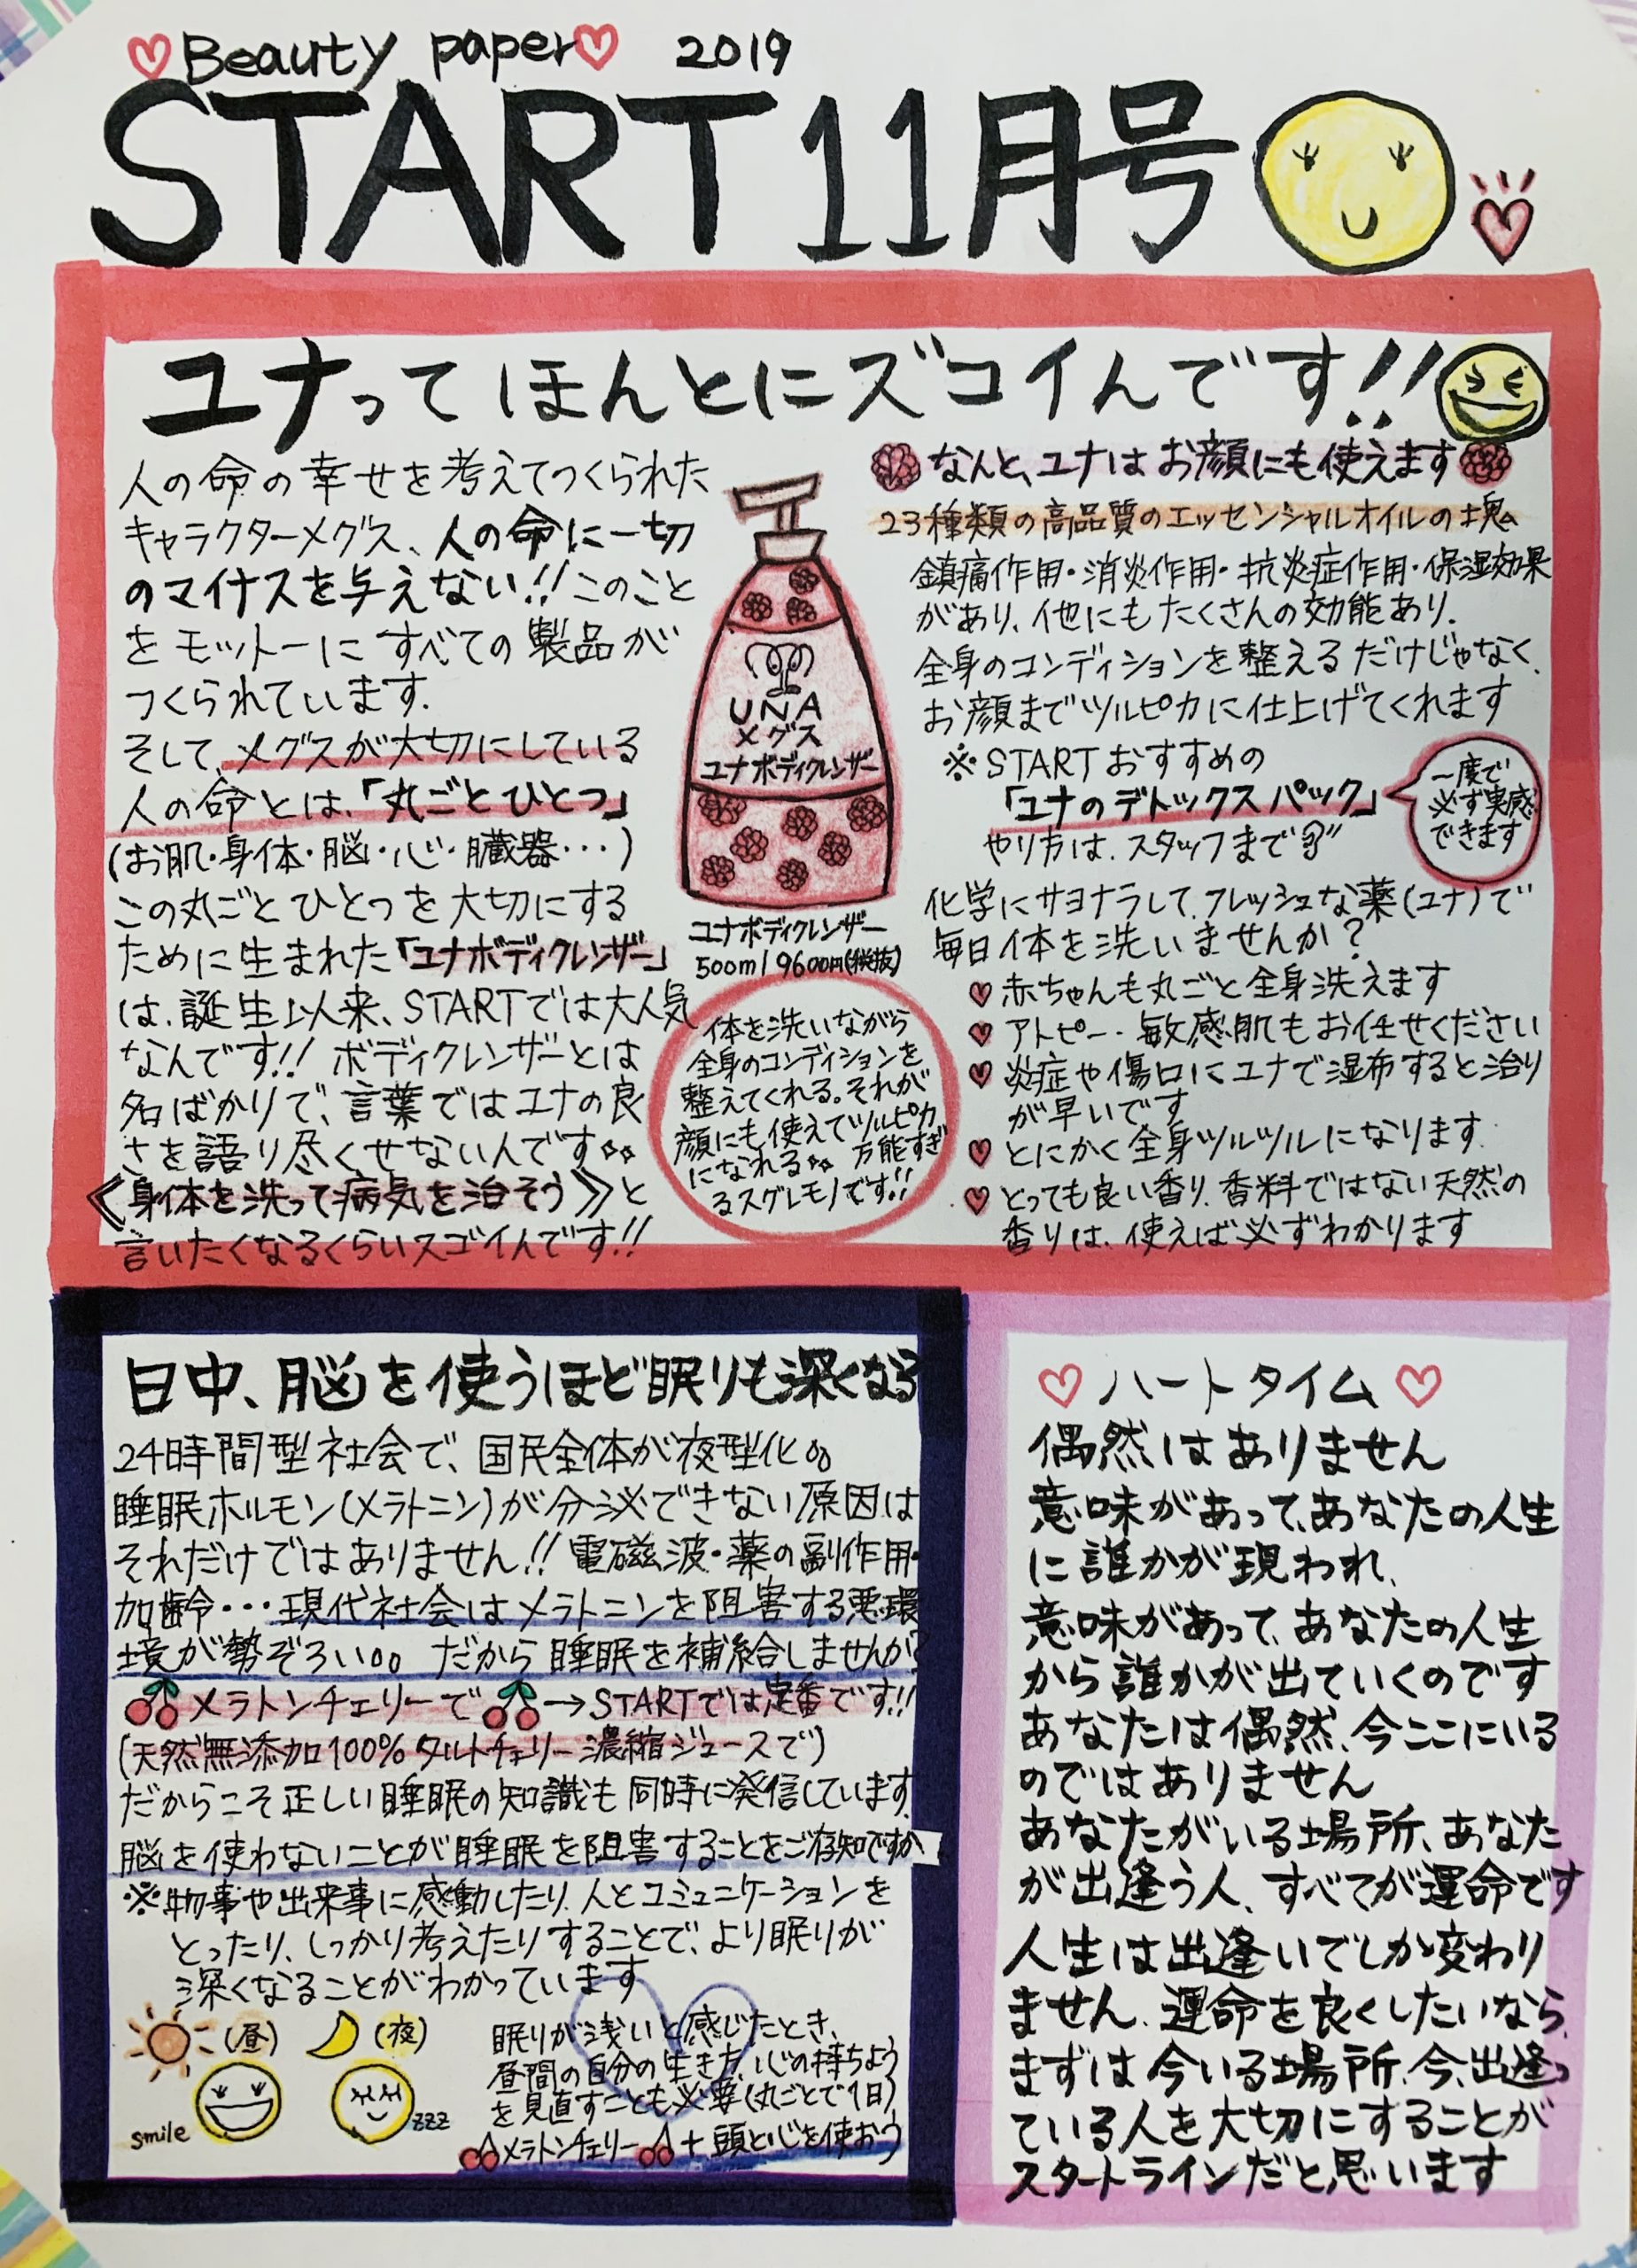 Beauty paper 2019
START 11月号
ユナってほんとにズコイんです!!
人の命の幸せを考えてつくられた
キャラクターメグス、人の命に一切
のマイナスを与えない!!このこと
をモットーにすべての製品が
つくられています.
そして、メグスが大切にしている
人の命とは、「丸ごとひとつ」
(お肌・身体・脳・心・臓器・・・)
この丸ごとひとつを大切にする
ために生まれた「ユナボディクレンザー」
は、誕生以来、STARTでは大人気
なんです!! ボディクレンザーとは
名ばかりで、言葉ではユナの良
さを語り尽くせないんです。。
《身体を洗って病気を治そう》と
言いたくなるくらいスゴイんです!!
UNA
メグス
ユナボディクレンザー
ユナボディクレンザー
500ml 9600円(税抜)
体を洗いながら
全身のコンディションを
整えてくれる。それが
顔にも使えてツルピカ
になれる。。 万能すぎ
るスグレモノです!!
なんと、ユナはお顔にも使えます
23種類の高品質のエッセンシャルオイルの塊。
鎮痛作用・消炎作用・抗炎症作用・保湿効果
があり、他にもたくさんの効能あり.
全身のコンディションを整えるだけじゃなく、
お顔までツルピカに仕上げてくれます
※STARTおすすめの
「ユナのデトックスパック」
やり方は、スタッフまで
一度で
必ず実感
できます
化学にサヨナラして、フレッシュな薬(ユナ)で
毎日体を洗いませんか?
♡赤ちゃんも丸ごと全身洗えます
♡アトピー・敏感肌もお任せください
♡炎症や傷口にユナで湿布すると治り
が早いです
♡とにかく全身ツルツルになります.
♡とっても良い香り、香料ではない天然の
香りは、使えば必ずわかります
日中、脳を使うほど眠りも深くなる
24時間型社会で、国民全体が夜型化。。
睡眠ホルモン(メラトニン)が分泌できない原因は
それだけではありません!! 電磁波・薬の副作用・
加齢・・・現代社会はメラトニンを阻害する悪環
境が勢ぞろい。。 だから睡眠を補給しませんか?
メラトンチェリーで→STARTでは定番です!!
(天然無添加100%タルトチェリー濃縮ジュースで)
だからこそ正しい睡眠の知識も同時に発信しています.
脳を使わないことが睡眠を阻害することをご存知ですか
※物事や出来事に感動したり、人とコミュニケーションを
とったり、しっかり考えたりすることで、より眠りが
深くなることがわかっています
(昼) (夜)
smile
zzz
眠りが浅いと感じたとき、
昼間の自分の生き方、心の持ちよう
を見直すことも必要(丸ごとで1日)
メラトンチェリー+頭と心を使おう
♡ハートタイム♡
偶然はありません
意味があって、あなたの人生
に誰かが現われ、
意味があって、あなたの人生
から誰かが出ていくのです
あなたは偶然、今ここにいる
のではありません
あなたがいる場所、あなた
が出逢う人、すべてが運命です
人生は出逢いでしか変わり
ません、運命を良くしたいなら、
まずは今いる場所、今、出逢っ
ている人を大切にすることが
スタートラインだと思います